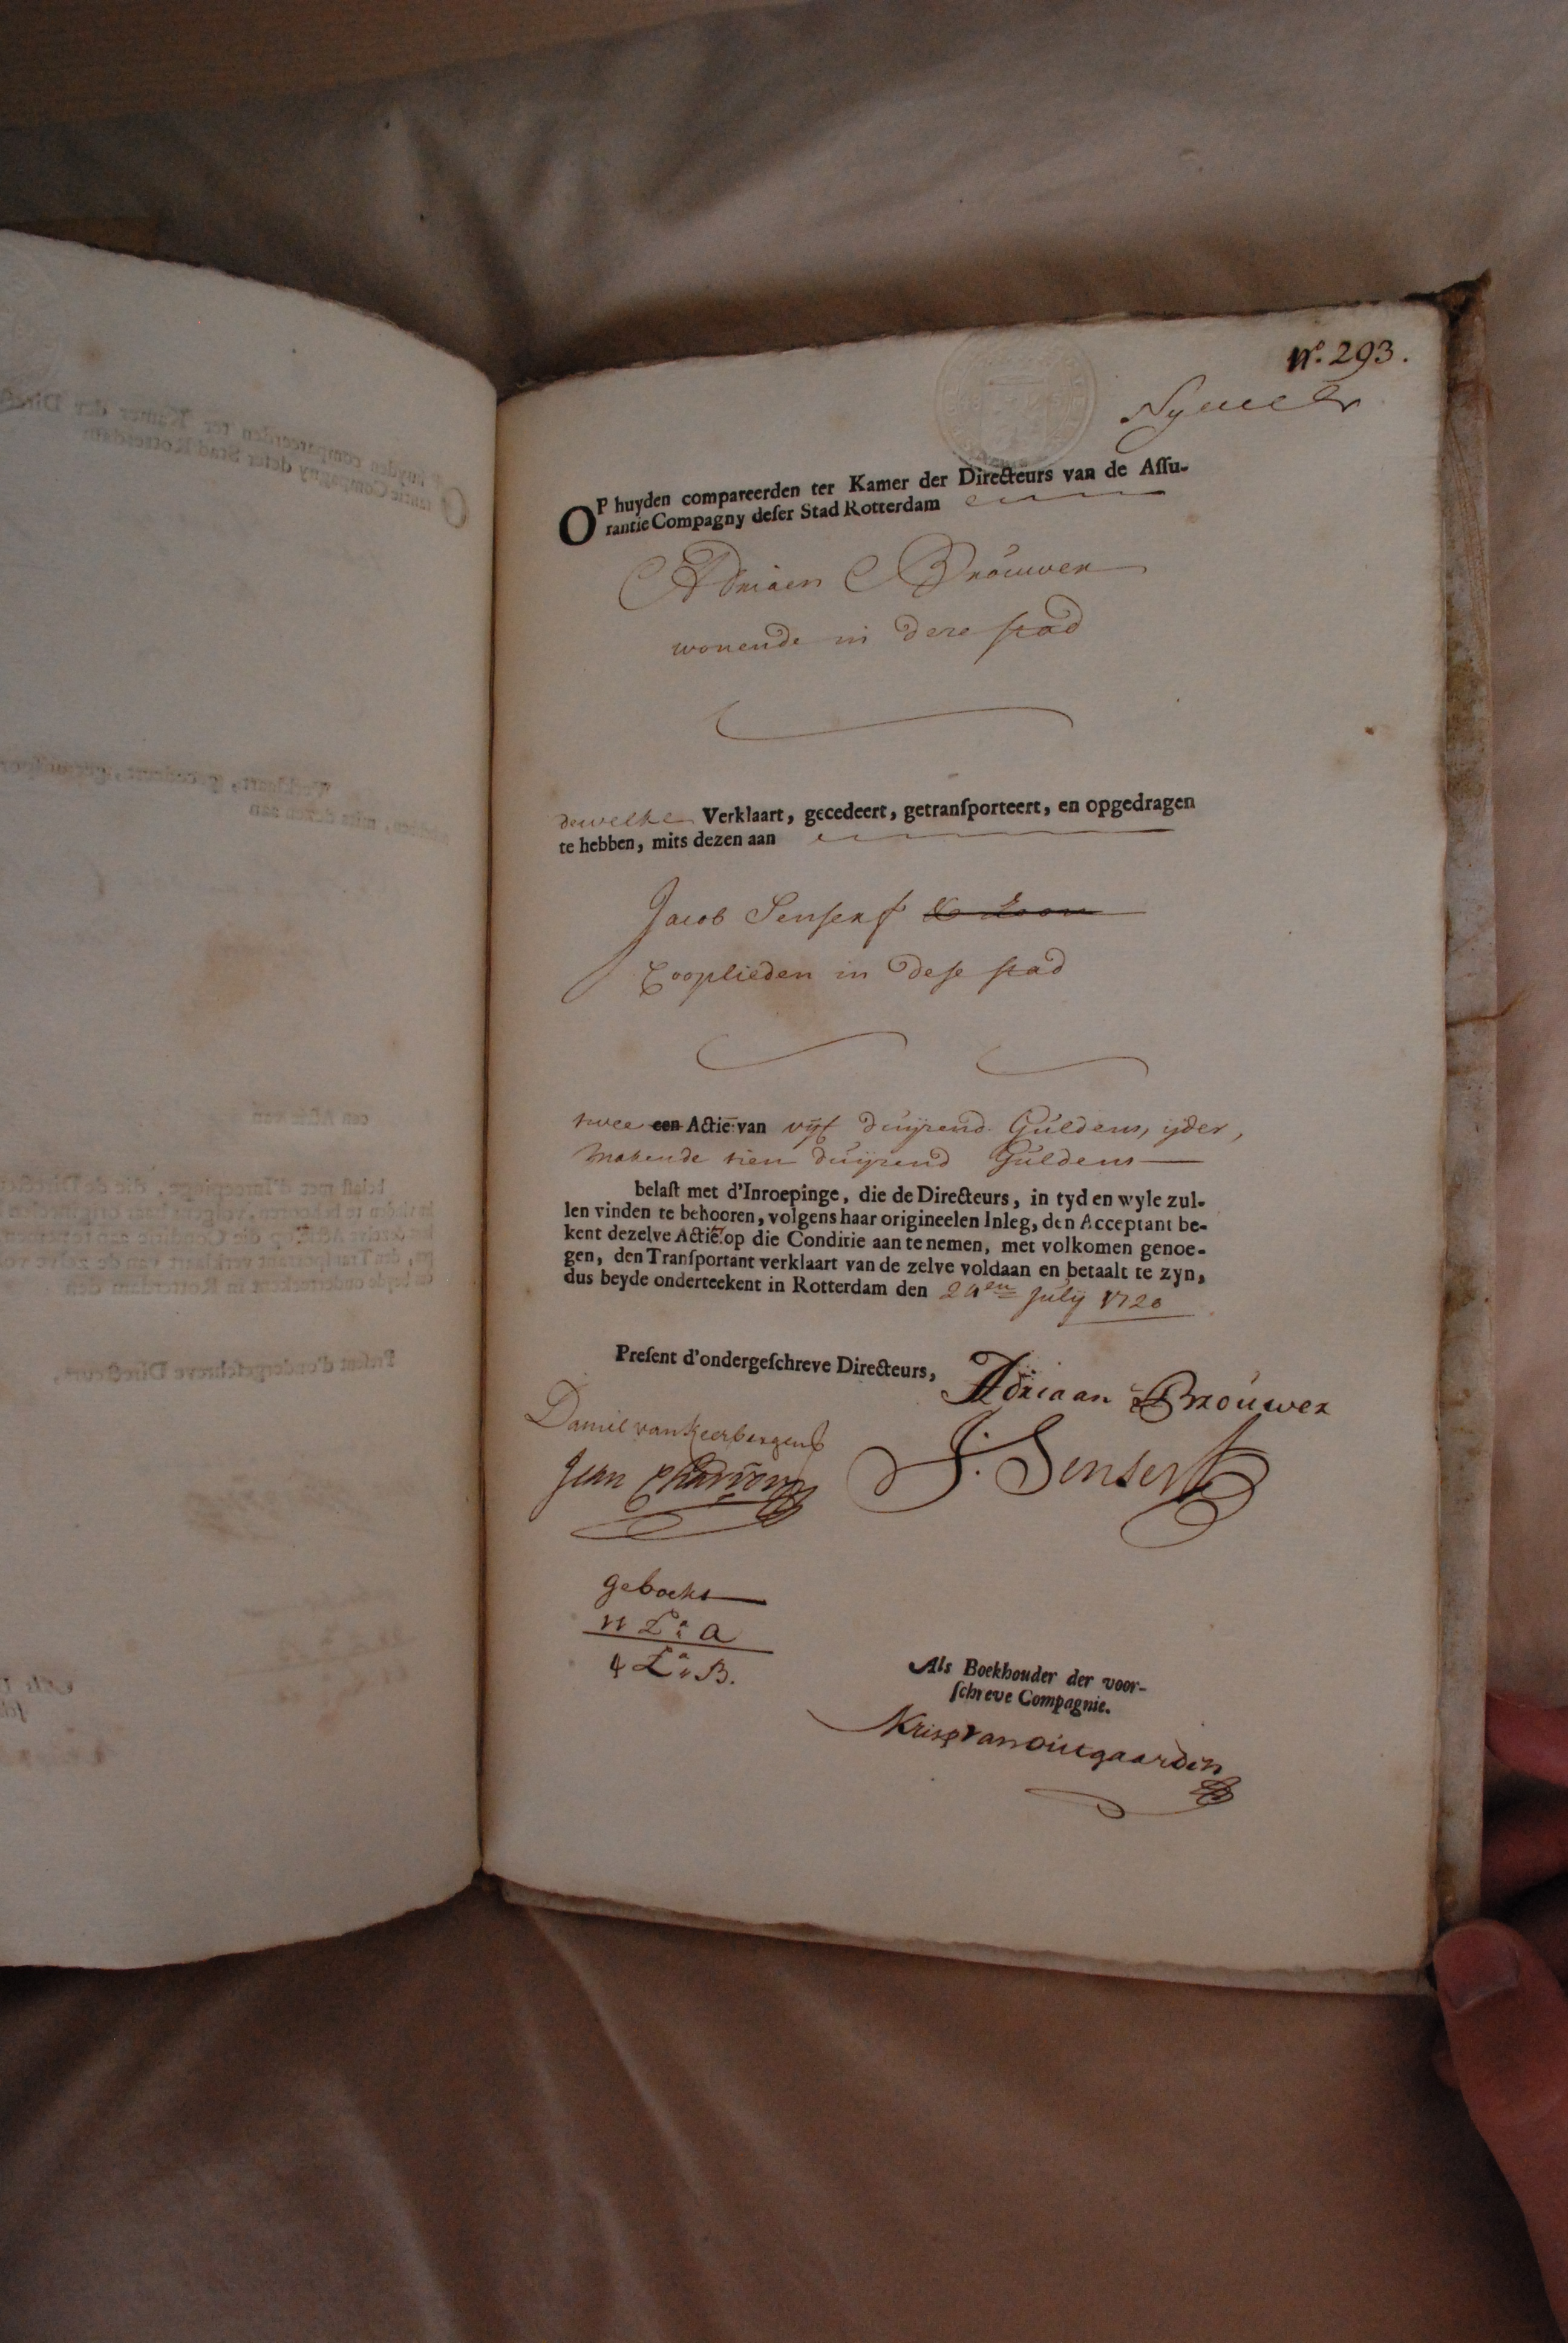 No. 293.
OP huyden compareerden ter Kamer der Directeurs van de Assu-
rantie Compagny deser Stad Rotterdam
Adriaen Brouwer
wonende in dese stad
dewelke Verklaart, gecedeert, getransporteert, en opgedragen
te hebben, mits dezen aan
Jacob Senserf
Cooplieden in dese stad
twee een Actie van vijf duijsend Guldens, ijder,
makende tien duijsend Guldens
belast met d'Inroepinge, die de Directeurs, in tyd en wyle zul-
len vinden te behooren, volgens haar origineelen Inleg, den Acceptant be-
kent dezelve Actie op die Conditie aan te nemen, met volkomen genoe-
gen, den Transportant verklaart van de zelve voldaan en betaalt te zyn,
dus beyde onderteekent in Rotterdam den 24en Julij 1720
Present d'ondergeschreve Directeurs,
Adriaan Brouwer
Daniel van Keerbergen
J. Senserf
Jean Charron
geboekt
11 La: A
4 La: B.
Als Boekhouder der voor-
schreve Compagnie.